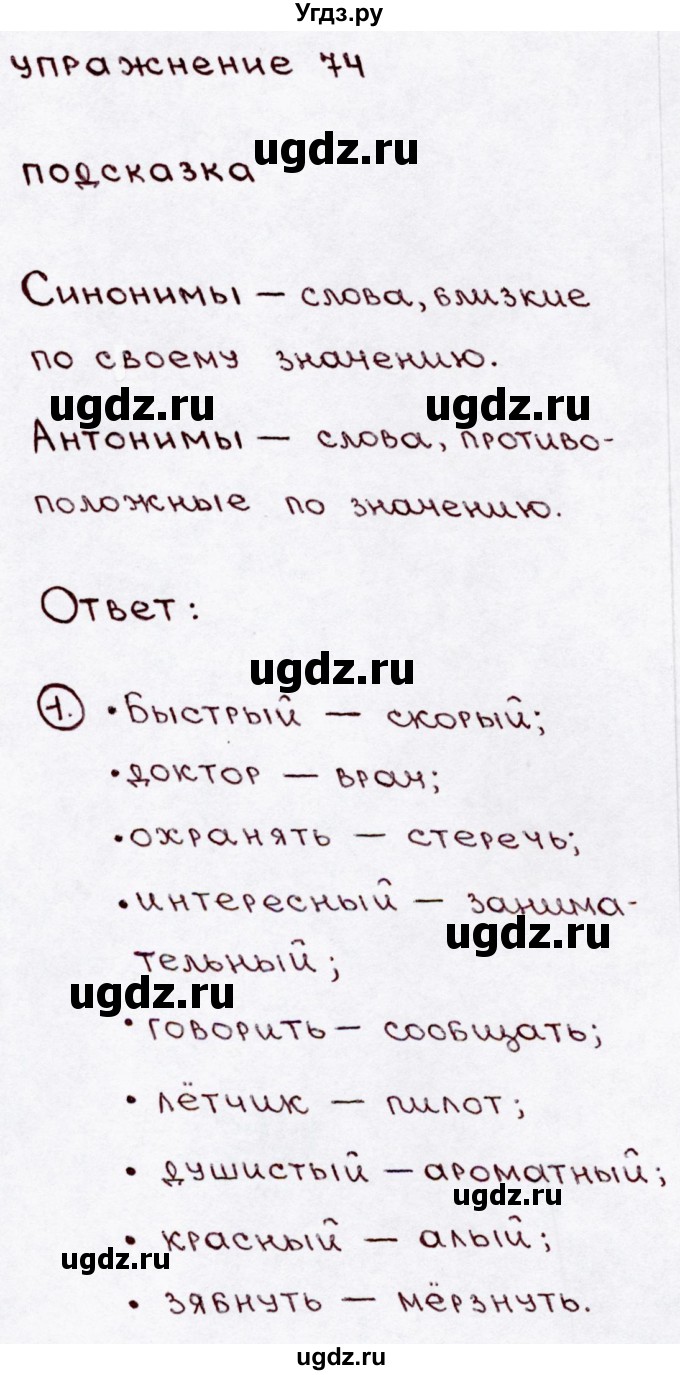 Угдз.ру
упражнение 74
ugdz.ru
подсказка
Синонимы — слова, близкие
по своему значению.
ugdz.ru ugdz.ru
Антонимы — слова, противо-
положные по значению.
Ответ:
ugdz.ru
1. • Быстрый — скорый;
• доктор — врач;
• охранять — стеречь;
• интересный — занима-
ugdz.ru
тельный;
ugdz.ru
• говорить — сообщать;
• лётчик — пилот;
• душистый — ароматный;
ugdz.ru
• красный — алый;
ugdz.ru
• зябнуть — мёрзнуть.
ugdz.ru